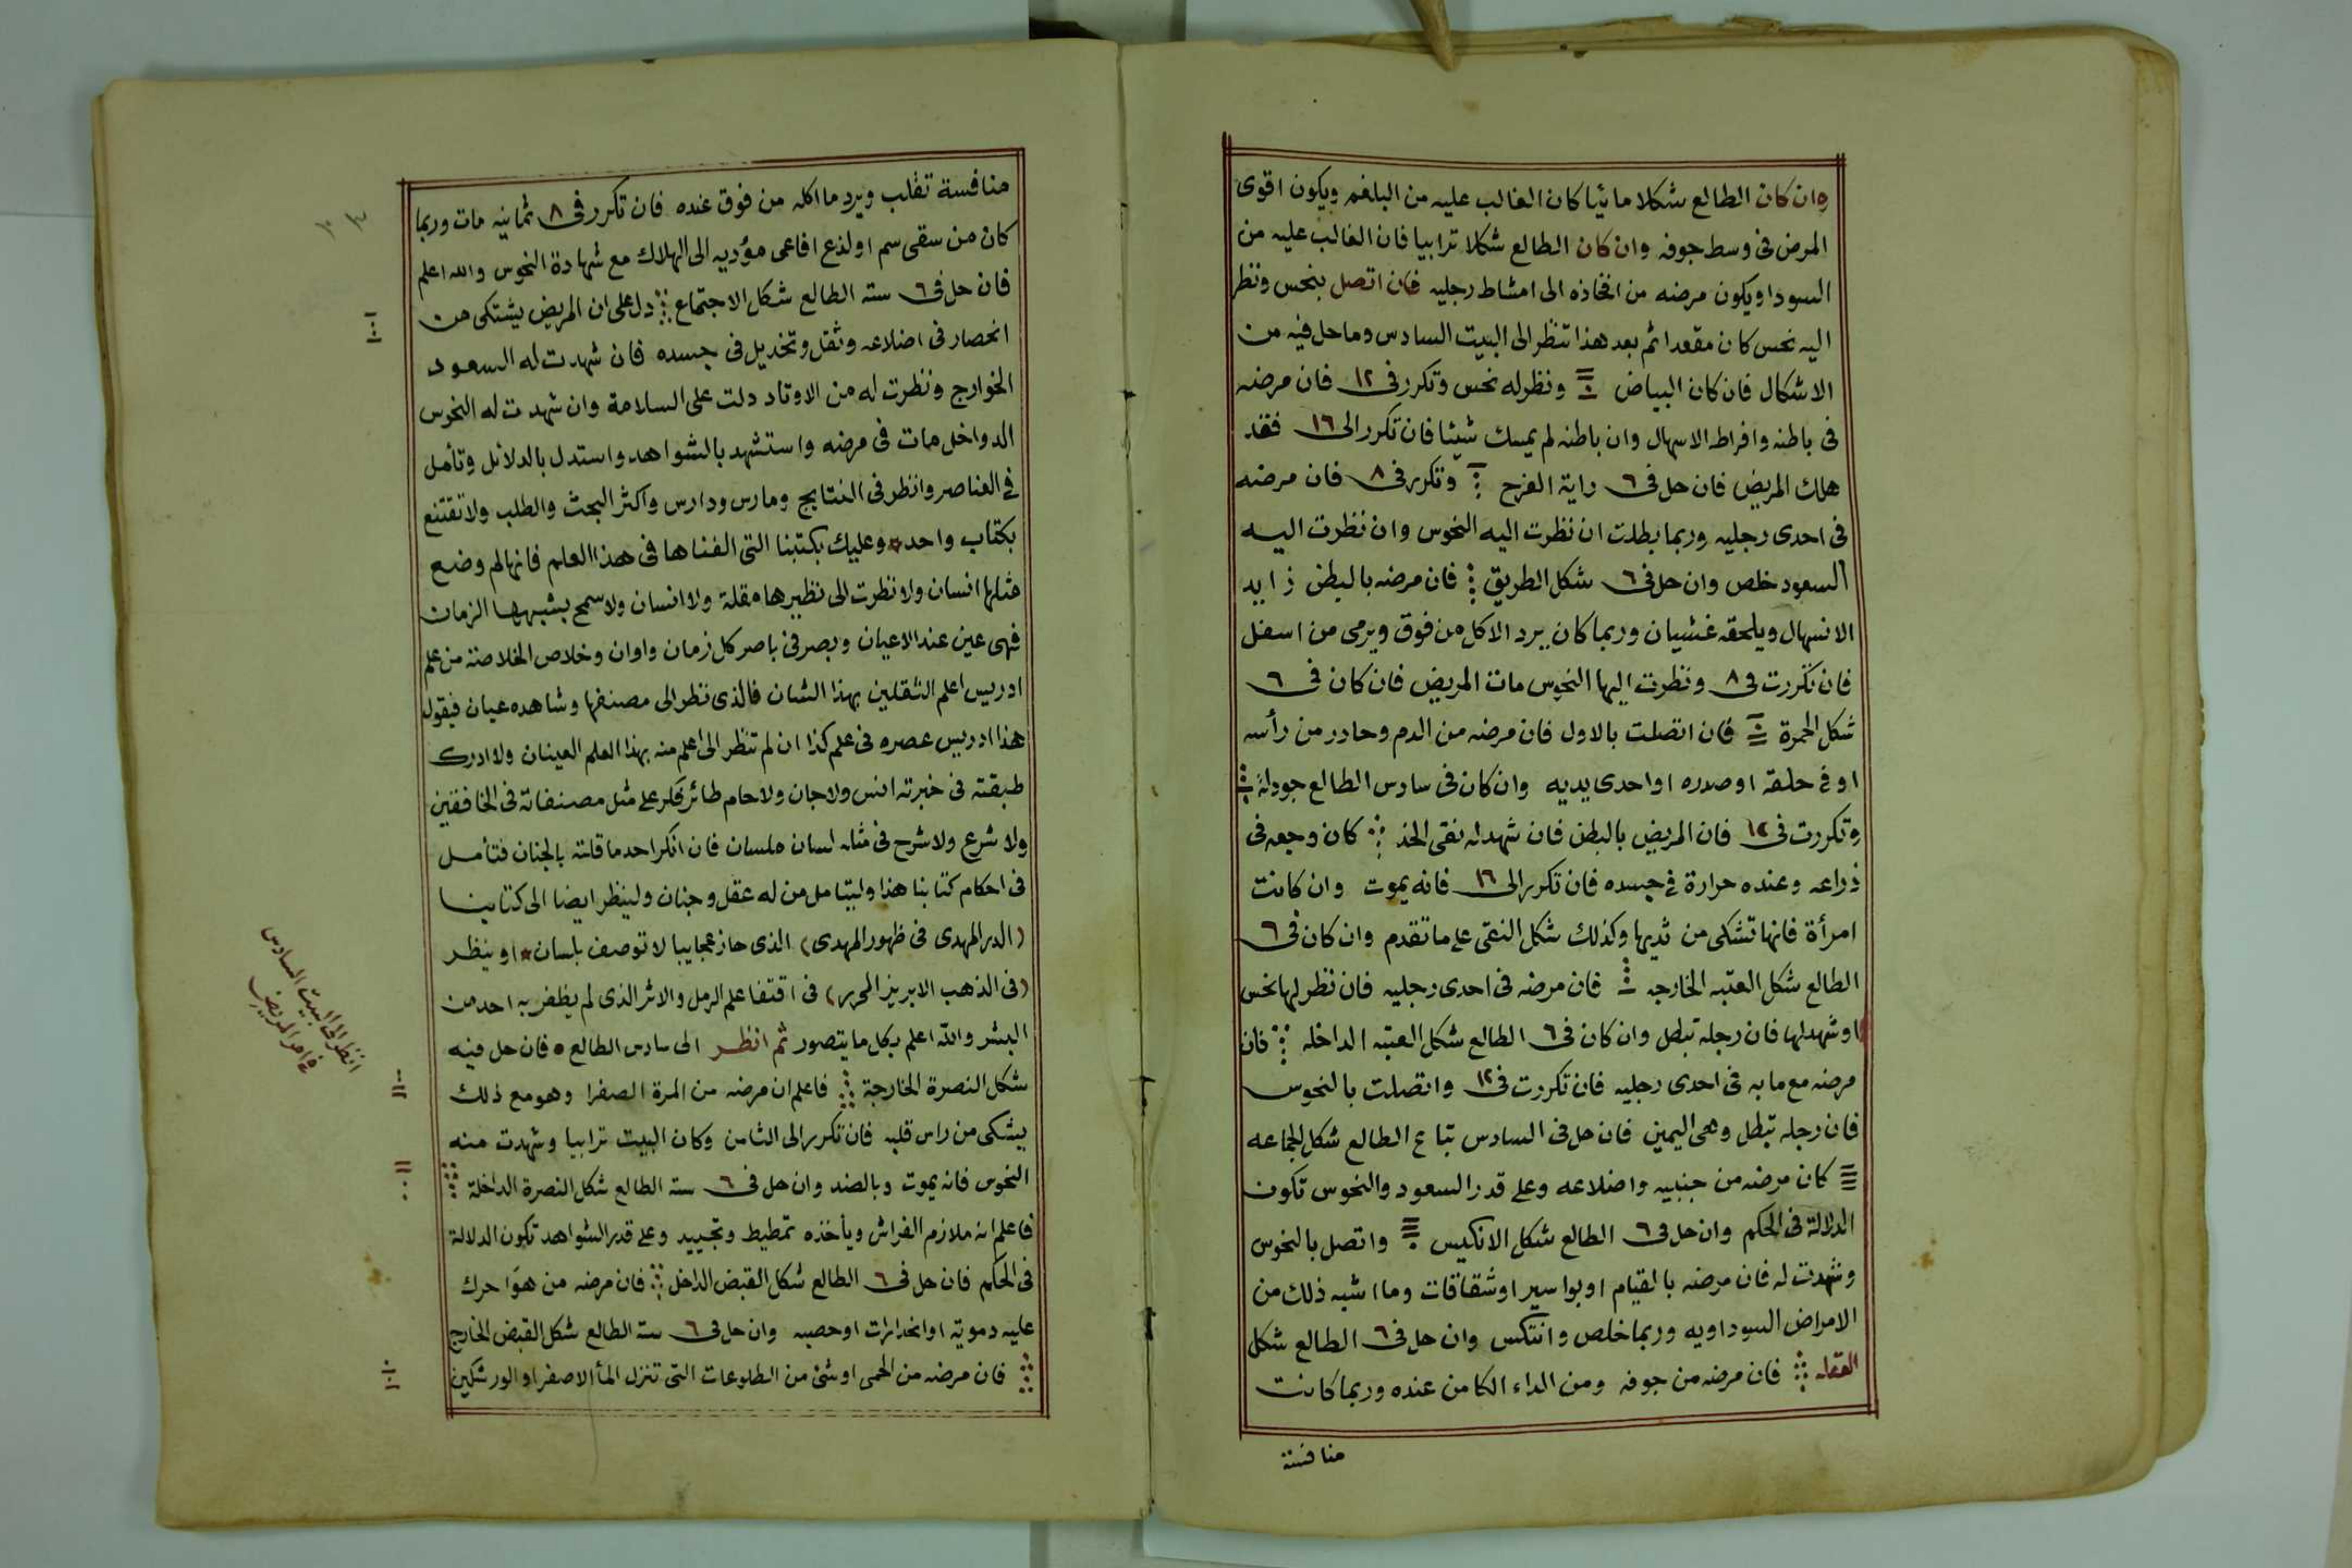 وان كان الطالع شكلا مائيا كان الغالب عليه من البلغم ويكون اقوى
المرض فى وسط جوفه وان كان الطالع شكلا ترابيا فان الغالب عليه من
السودا ويكون مرضه من افخاذه الى امشاط رجليه فان اتصل بنحس ونظر
اليه نحس كان مقعدا ثم بعد هذا تنظر الى البيت السادس وما حل فيه من
الاشكال فان كان البياض ونظر له نحس وتكرر فى ١٢ فان مرضه
فى باطنه وافراط الاسهال وان باطنه لم يمسك شيئا فان تكرر الى ١٦ فقد
هلك المريض فان حل فى ٦ راية الفرح وتكرر فى ٨ فان مرضه
فى احدى رجليه وربما بطلت ان نظرت اليه النحوس وان نظرت اليه
السعود خلص وان حل فى ٦ شكل الطريق فان مرضه بالبطن زايد
الانسهال ويلحقه غشيان وربما كان يرد الاكل من فوق ويرمى من اسفل
فان تكررت فى ٨ ونظرت اليها النحوس مات المريض فان كان فى ٦
شكل الحمرة فان اتصلت بالاول فان مرضه من الدم وحادر من رأسه
او فى حلقه او صدره او احدى يديه وان كان فى سادس الطالع جودلة
وتكررت فى ١٢ فان المريض بالبطن فان شهد له نقى الخد كان وجعه فى
ذراعه وعنده حرارة فى جسده فان تكرر الى ١٦ فانه يموت وان كانت
امرأة فانها تشكى من ثديها وكذلك شكل النقى على ما تقدم وان كان فى ٦
الطالع شكل العتبه الخارجه فان مرضه فى احدى رجليه فان نظر لها نحس
او شهد لها فان رجله تبطل وان كان فى ٦ الطالع شكل العتبه الداخله فان
مرضه مع ما به فى احدى رجليه فان تكررت فى ١٢ واتصلت بالنحوس
فان رجله تبطل وهى اليمين فان حل فى السادس تباع الطالع شكل الجماعه
كان مرضه من جنبيه واضلاعه وعلى قدر السعود والنحوس تكون
الدلالة فى الحكم وان حل فى ٦ الطالع شكل الانكيس واتصل بالنحوس
وشهدت له فان مرضه بالقيام او بواسير او شقاقات وما اشبه ذلك من
الامراض السوداويه وربما خلص وانتكس وان حل فى ٦ الطالع شكل
العقله فان مرضه من جوفه ومن الداء الكامن عنده وربما كانت
منافسة
منافسة تقلب ويرد ما اكله من فوق عنده فان تكرر فى ٨ ثمانيه مات وربما
كان من سقى سم او لذع افاعى مؤديه الى الهلاك مع شهادة النحوس والله اعلم
فان حل فى ٦ سته الطالع شكل الاجتماع دل على ان المريض يشتكى من
انحصار فى اضلاعه وثقل وتخديل فى جسده فان شهدت له السعود
الخوارج ونظرت له من الاوتاد دلت على السلامة وان شهدت له النحوس
الدواخل مات فى مرضه واستشهد بالشواهد واستدل بالدلائل وتأمل
فى العناصر وانظر فى النتايج ومارس ودارس واكثر البحث والطلب ولا تقتنع
بكتاب واحد وعليك بكتبنا التى الفناها فى هذا العلم فانها لم وضع
مثلها انسان ولا نظرت الى نظيرها مقلة ولا انسان ولا سمح بشبهها الزمان
فهى عين عند الاعيان وبصر فى باصر كل زمان واوان وخلاص الخلاصة من علم
ادريس اعلم الثقلين بهذا الشان فالذى نظر الى مصنفها وشاهده عيان فيقول
هذا ادريس عصره فى علم كذا ان لم تنظر الى اعلم منه بهذا العلم العينان ولا ادرك
طبقته فى خبرته انس ولا جان ولا حام طائر فكر على مثل مصنفاته فى الخافقين
ولا شرع ولا شرح فى مثله لسان ملسان فان انكر احد ما قلته بالجنان فتأمل
فى احكام كتابنا هذا وليتامل من له عقل وجنان ولينظر ايضا الى كتابنا
(الدر المهدى فى ظهور المهدى) الذى حاز عجايبا لا توصف بلسان او ينظر
(فى الذهب الابريز المحرر) فى اقتفا علم الرمل والاثر الذى لم يظفر به احد من
البشر والله اعلم بكل ما يتصور ثم انظر الى سادس الطالع فان حل فيه
شكل النصرة الخارجة فاعلم ان مرضه من المرة الصفرا وهو مع ذلك
يشكى من راس قلبه فان تكرر الى الثامن وكان البيت ترابيا وشهدت منه
النحوس فانه يموت وبالضد وان حل فى ٦ سته الطالع شكل النصرة الداخلة
فاعلم انه ملازم الفراش ويأخذه تمطيط وتجبيد وعلى قدر الشواهد تكون الدلالة
فى الحكم فان حل فى ٦ الطالع شكل القبض الداخل فان مرضه من هوا حرك
عليه دمويه او انحدارات او حصبه وان حل فى ٦ سته الطالع شكل القبض الخارج
فان مرضه من الحمى او شئ من الطلوعات التى تنزل الماء الاصفر او الورشكين
انظر الى البيت السادس
فى امر المريض